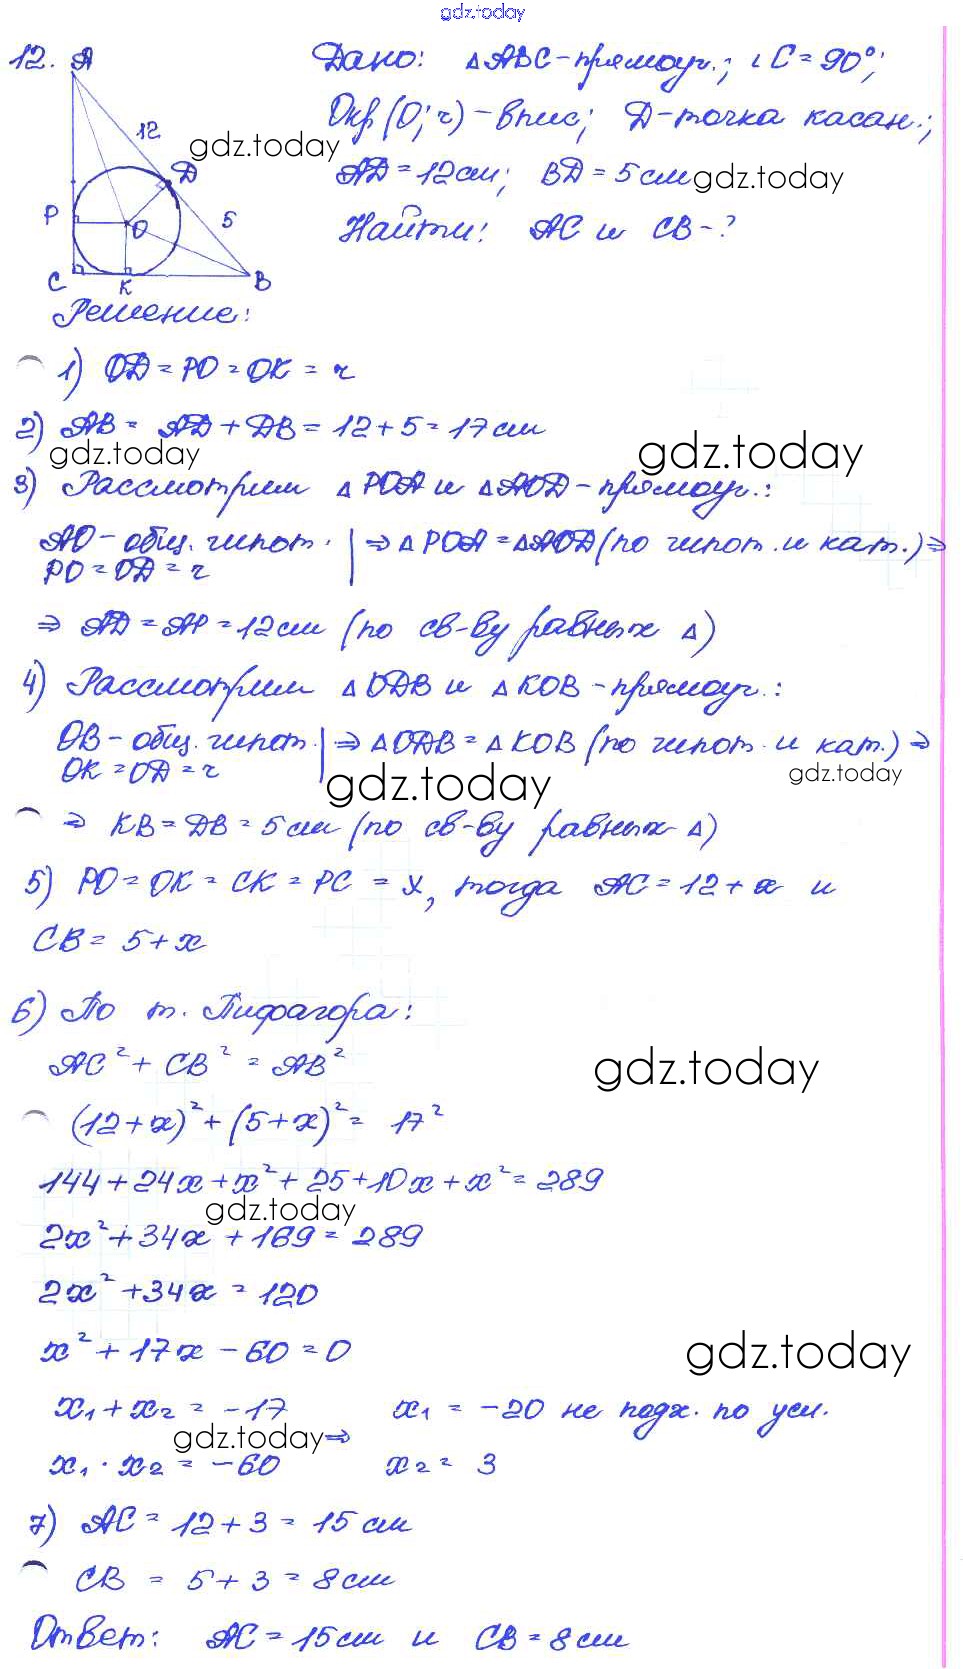 gdz.today
12. A
Дано: △ABC-прямоуг.; ∟C=90°;
12
Окр(O; r)-впис; D-точка касан.;
gdz.today
D
AD=12см; BD=5см
gdz.today
P
O
5
Найти: AC и CB-?
C
K
B
Решение:
1) OD=PO=OK=r
2) AB= AD+DB=12+5=17см
gdz.today
gdz.today
3) Рассмотрим △POA и △AOD-прямоуг.:
AO-общ. гипот. | ⇒ △POA=△AOD(по гипот. и кат.)⇒
PO=OD=r
⇒ AD=AP=12см (по св-ву равных △)
4) Рассмотрим △ODB и △KOB-прямоуг.:
OB-общ. гипот. | ⇒ △ODB=△KOB(по гипот. и кат.)⇒
OK=OD=r
gdz.today
gdz.today
⇒ KB=DB=5см (по св-ву равных △)
5) PO=OK=CK=PC=x, тогда AC=12+x и
CB=5+x
6) По т. Пифагора:
AC²+CB²=AB²
gdz.today
(12+x)²+(5+x)²=17²
144+24x+x²+25+10x+x²=289
gdz.today
2x²+34x+169=289
2x²+34x=120
x²+17x-60=0
gdz.today
x₁+x₂=-17 x₁=-20 не подх. по усл.
gdz.today ⇒
x₁·x₂=-60 x₂=3
7) AC=12+3=15см
CB=5+3=8см
Ответ: AC=15см и CB=8см